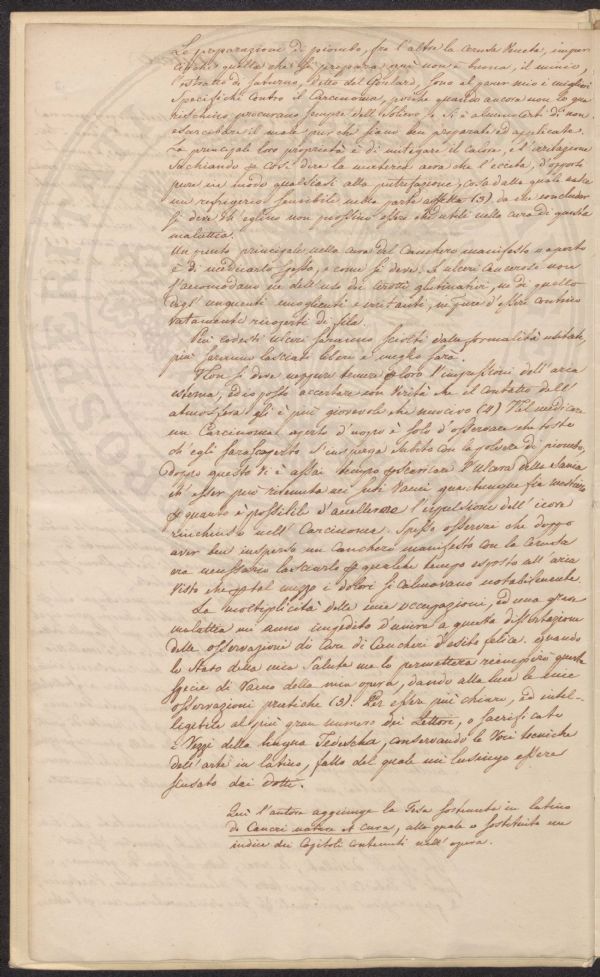 Le preparazioni di piombo, fra l'altre la cerusa Veneta, imper
ciocchè quella che si prepara quì non è buona, il minio,
l'estratto di Saturno, detto del Goulard, sono al parer mio i migliori
Specifichi contro il Carcinoma, poichè quando ancora non lo gua
rischino procurano sempre dell'Solievo, e si è almeno certi di non
esacerbare il male purchè siano ben preparate ed applicate.
La principale loro proprietà è di mitigare il calore, e l'irritazione
succhiando per così dire la materia acra che l'eccita, d'opporsi
pure in modo qualsiasi alla putrefazione, cosa dalla quale nasce
un refrigerio sensibile nella parte affetta (3) da che concluder
si deve ch'eglino non possino esser che utili nella cura di questa
malattia.
Un punto principale nella cura del Canchero manifesto o aperto
è di medicarlo spesso, e come si deve. A ulceri cancerose non
s'accomodano nè dell'uso dei cerotti glutinativi, nè di quello
degl'unguenti mollienti e irritanti, neppure d'esser continuo
vatamente ricoperti di fila.
Più codesti ulceri saranno sciolti dalle formalità usitate,
più saranno lasciati liberi e meglio sarà.
Non si deve neppure temere per loro l'impressioni dell'aria
esterna, ed io posso accertare con verità che il contatto dell'
atmosfera gli è più giovevole che nuocivo (1) Nel medicare
un Carcinoma aperto d'uopo è solo d'osservare che tosto
ch'egli sarà scoperto s'insperga subito con la polvere di piombo,
doppo questo vi è assai tempo per scaricare l'Ulcera della Sania
ch'esser può ritenuta nei suoi Vacui quantunque sia mestiere
per quanto è possibile d'accellerare l'espulsione dell'icore
rinchiuso nell'Carcinoma. Spesso osservai che doppo
aver ben insperso un canchero manifesto con la Cerusa
era necessario lasciarlo per qualche tempo esposto all'aria
visto che per tal mezzo i dolori si calmavano notabilmente.
La moltiplicità delle mie occupazioni, ed una grave
malattia mi anno impedito d'unire a questa dissertazione
delle osservazioni di Cure di Cancheri d'esito felice. Quando
lo Stato della mia Salute me lo permetterà riempirò questa
specie di Vacuo della mia opera, dando alla luce le mie
osservazioni pratiche (2). Per esser più chiaro, ed intel-
legibile al più gran numero dei Lettori, o sacrificato
i Vezzi della lingua Tedescha, conservando le Voci tecniche
dell'arte in latino, fallo del quale mi lusingo essere
scusato dai dotti.
Quì l'autore aggiunge la Tesa sostenuta in latino
de Cancri natura et cura, alla quale o sostituito un
indice dei Capitoli contenuti nell'opera.